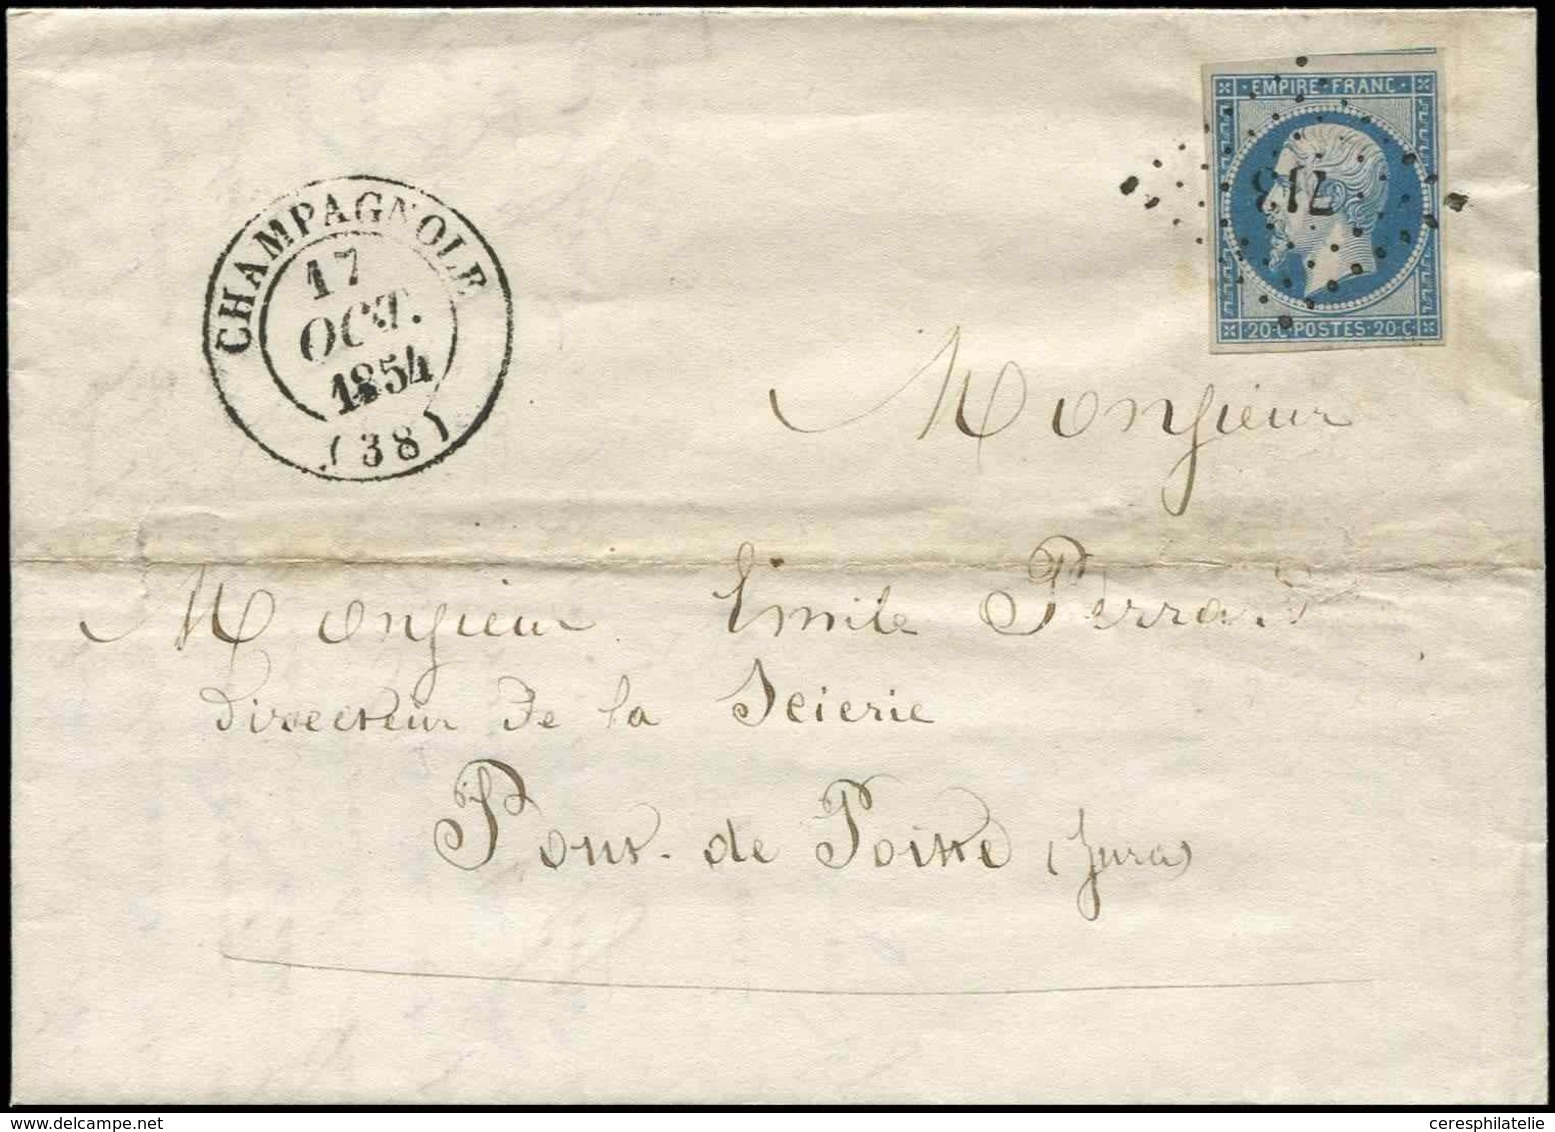 EMPIRE FRANC
713
20·C·POSTES·20·C
CHAMPAGNOLE
17
OCT.
1854
(38)
Monsieur
Monsieur Emile Perrard
Directeur de la Scierie
Pont-de-Poitte (Jura)
ceresphilatelie